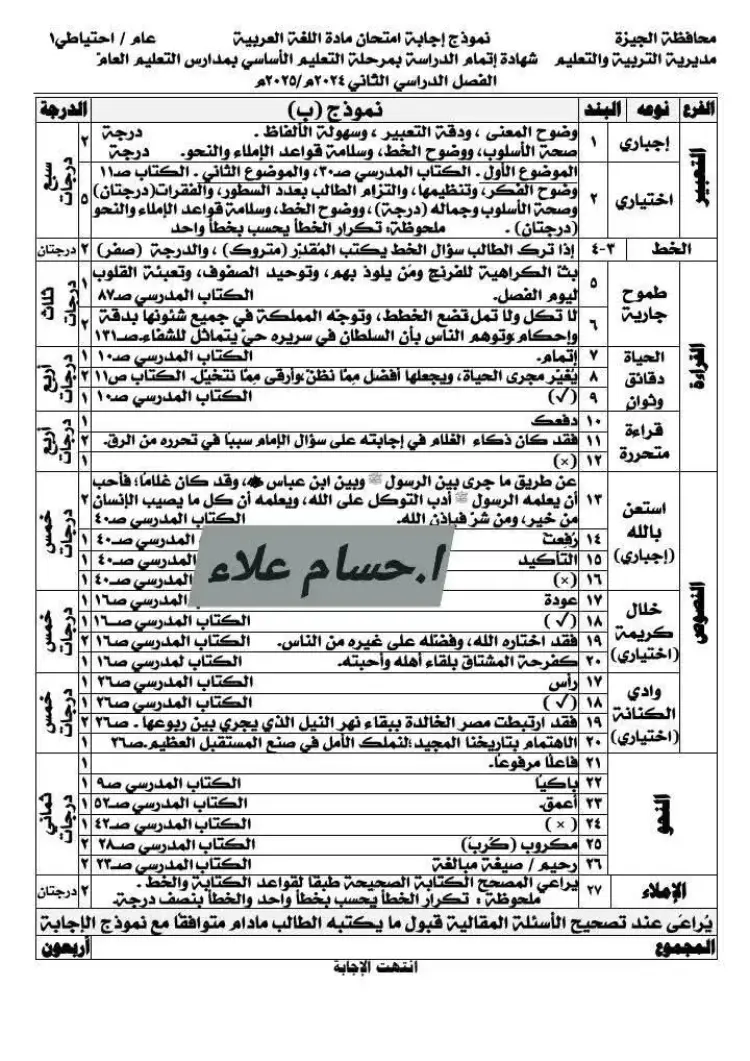 محافظة الجيزة نموذج إجابة امتحان مادة اللغة العربية عام / احتياطي١
مديرية التربية والتعليم شهادة إتمام الدراسة بمرحلة التعليم الأساسي بمدارس التعليم العام
الفصل الدراسي الثاني ٢٠٢٤م/٢٠٢٥م
الفرع نوعه البند نموذج (ب) الدرجة
التعبير إجباري ١ وضوح المعنى ، ودقة التعبير ، وسهولة الألفاظ . درجة
صحة الأسلوب، ووضوح الخط، وسلامة قواعد الإملاء والنحو. درجة ٢ سبع درجات
اختياري ٢ الموضوع الأول . الكتاب المدرسي صـ٣٠، والموضوع الثاني . الكتاب صـ١١
وضوح الفكر، وتنظيمها، والتزام الطالب بعدد السطور، والفقرات(درجتان)
وصحة الأسلوب وجماله (درجة) ، ووضوح الخط، وسلامة قواعد الإملاء والنحو
(درجتان) . ملحوظة: تكرار الخطأ يحسب بخطأ واحد ٥
الخط ٣-٤ إذا ترك الطالب سؤال الخط يكتب المقدر (متروك) ، والدرجة (صفر) ٢ درجتان
القراءة طموح جارية ٥ بث الكراهية للفرنج ومن يلوذ بهم، وتوحيد الصفوف، وتعبئة القلوب
ليوم الفصل. الكتاب المدرسي صـ٨٧ ١ ثلاث درجات
٦ لا تكل ولا تمل تضع الخطط، وتوجه المملكة في جميع شئونها بدقة
وإحكام، وتوهم الناس بأن السلطان في سريره حي يتماثل للشفاء.صـ١٣١ ٢
الحياة دقائق وثوان ٧ إتمام. الكتاب المدرسي صـ١٠ ١ أربع درجات
٨ يُغيّر مجرى الحياة، ويجعلها أفضل مما نظن، وأرقى مما نتخيل. الكتاب ص١١ ٢
٩ (√) الكتاب المدرسي صـ١٠ ١
قراءة متحررة ١٠ دفعك ١ أربع درجات
١١ فقد كان ذكاء الغلام في إجابته على سؤال الإمام سببا في تحرره من الرق. ٢
١٢ (×) ١
النصوص استعن بالله (إجباري) ١٣ عن طريق ما جرى بين الرسول ﷺ وبين ابن عباس ، وقد كان غلامًا؛ فأحب
أن يعلمه الرسول ﷺ أدب التوكل على الله، ويعلمه أن كل ما يصيب الإنسان
من خير، ومن شر فبإذن الله. الكتاب المدرسي صـ٤٠ ٢ خمس درجات
١٤ رُفِعت المدرسي صـ٤٠ ١
١٥ التأكيد المدرسي صـ٤٠ ١
١٦ (×) المدرسي صـ٤٠ ١
ا.حسام علاء
خلال كريمة (اختياري) ١٧ عودة الكتاب المدرسي صـ١٦ ١ خمس درجات
١٨ (√) الكتاب المدرسي صـ١٦ ١
١٩ فقد اختاره الله، وفضله على غيره من الناس. الكتاب المدرسي صـ١٦ ٢
٢٠ كفرحة المشتاق بلقاء أهله وأحبته. الكتاب لمدرسي صـ١٦ ١
وادي الكنانة (اختياري) ١٧ رأس الكتاب المدرسي صـ٢٦ ١ خمس درجات
١٨ (√) الكتاب المدرسي صـ٢٦ ١
١٩ فقد ارتبطت مصر الخالدة ببقاء نهر النيل الذي يجري بين ربوعها . صـ٢٦ ٢
٢٠ الاهتمام بتاريخنا المجيد؛لنملك الأمل في صنع المستقبل العظيم.صـ٢٦ ١
النحو ٢١ فاعلًا مرفوعًا. ١ ثماني درجات
٢٢ باكيًا الكتاب المدرسي صـ٩ ١
٢٣ أعمق. الكتاب المدرسي صـ٥٢ ١
٢٤ (×) الكتاب المدرسي صـ٤٢ ١
٢٥ مكروب (كُرِبَ) الكتاب المدرسي صـ٢٨ ٢
٢٦ رحيم / صيغة مبالغة الكتاب المدرسي صـ٢٣ ٢
الإملاء ٢٧ يراعي المصحح الكتابة الصحيحة طبقًا لقواعد الكتابة والخط .
ملحوظة : تكرار الخطأ يحسب بخطأ واحد والخطأ بنصف درجة. ٢ درجتان
يُراعَى عند تصحيح الأسئلة المقالية قبول ما يكتبه الطالب مادام متوافقًا مع نموذج الإجابة
المجموع أربعون
انتهت الإجابة